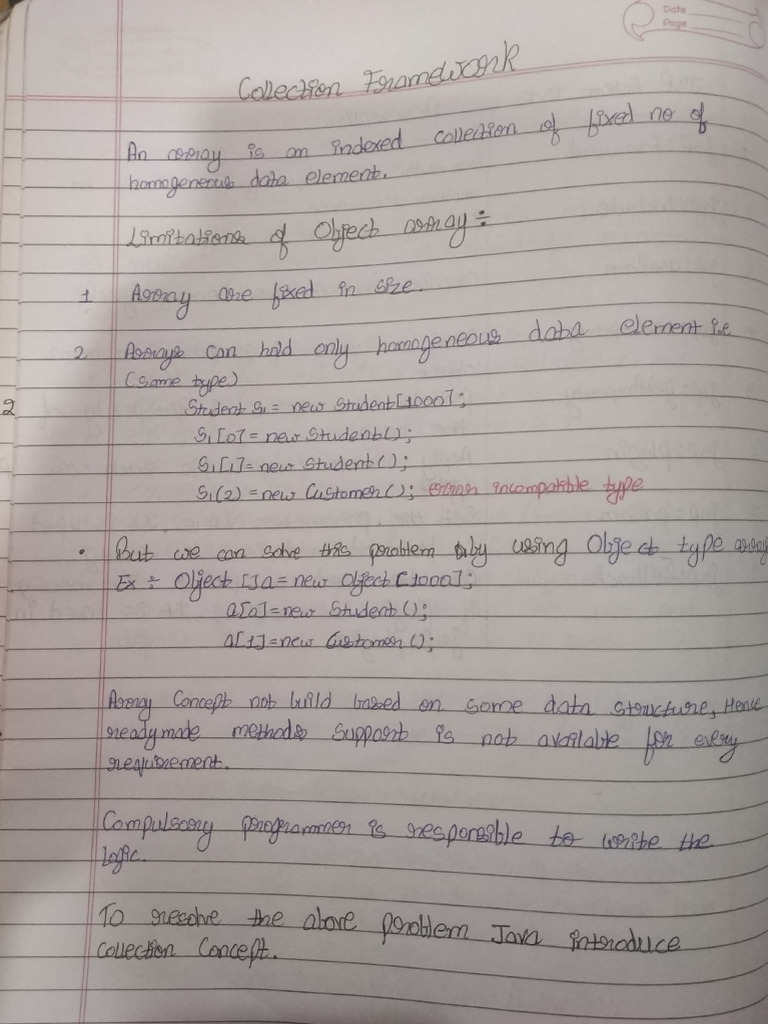 Date
Page
Collection Framework
An array is an indexed collection of fixed no of
homogeneous data element.
Limitations of Object array ÷
1 Array are fixed in size.
2 Arrays can hold only homogeneous data element i.e
(same type)
2
Student S1 = new Student[1000];
S1[0] = new Student();
S1[1] = new Student();
S1(2) = new Customer(); error incompatible type
• But we can solve this problem by using Object type array
Ex ÷ Object []a = new Object[1000];
a[0] = new Student();
a[1] = new Customer();
Array Concept not build based on some data structure, Hence
readymade methods support is not available for every
requirement.
Compulsory programmer is responsible to write the
logic.
To resolve the above problem Java introduce
collection Concept.